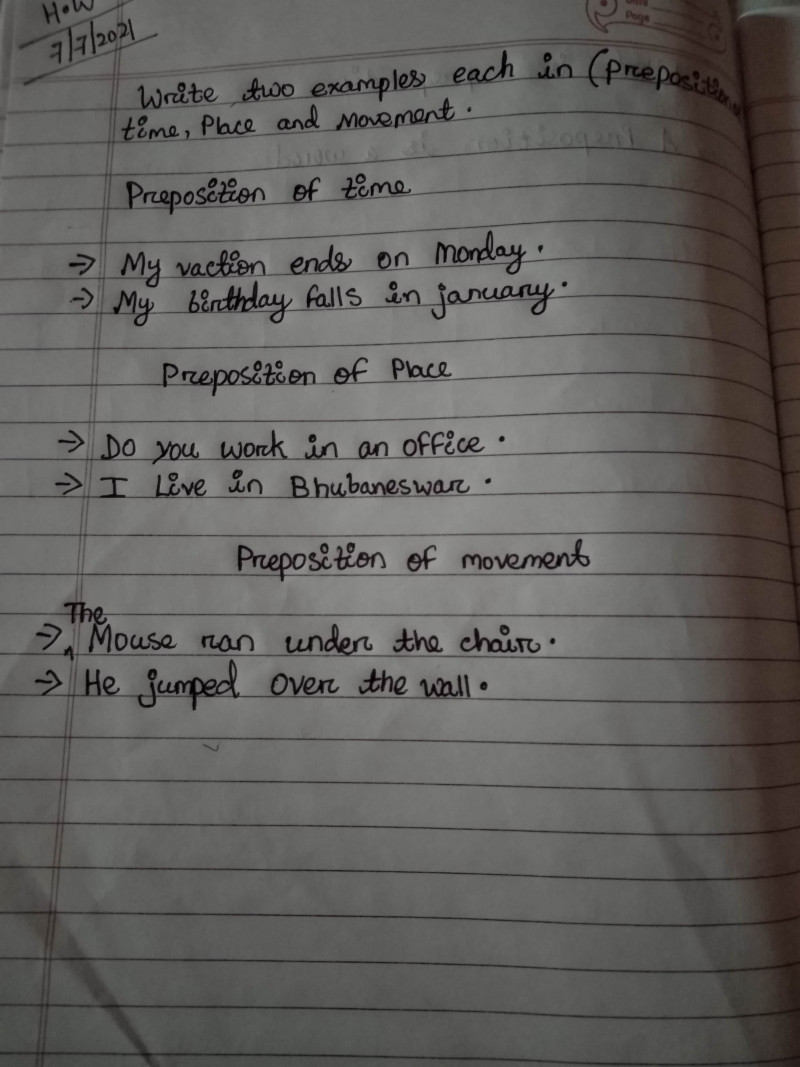 H.W
7/7/2021
Page
Write two examples each in (preposition
time, Place and Movement.
Preposition of time
→ My vaction ends on Monday.
→ My birthday falls in january.
Preposition of Place
→ Do you work in an office.
→ I Live in Bhubaneswar.
Preposition of movement
The
→ ^ Mouse ran under the chair.
→ He jumped over the wall.